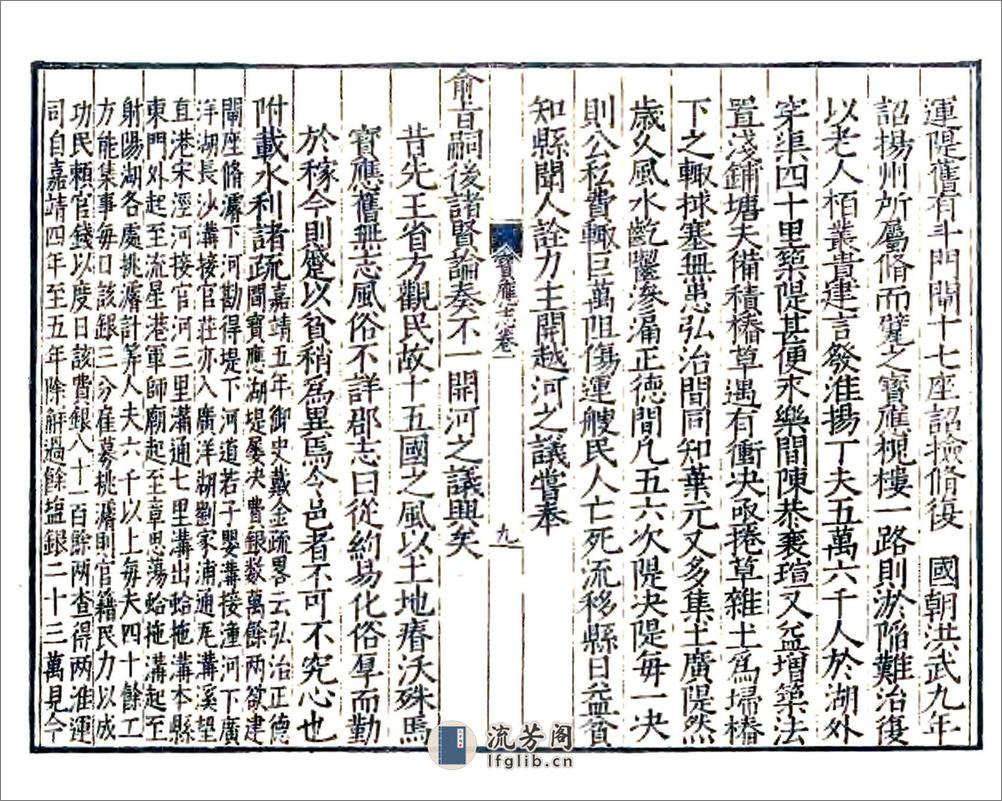 運隄舊有斗門閘十七座詔撿脩復　國朝洪武九年
詔揚州所屬脩而甓之寶應槐樓一路則淤陷難治復
以老人栢叢貴建言發淮揚丁夫五萬六千人於湖外
穿渠四十里築隄甚便永樂間陳恭襄瑄又益增築法
置淺鋪塘夫備積樁草遇有衝決㪅捲草雜土爲埽樁
下之輙捄塞無患弘治間同知葉元又多集土廣隄然
歲久風水齕齧滲漏正德間凡五六次隄決隄每一決
則公私費輙巨萬阻傷運艘民人亡死流移縣日益貧
知縣聞人詮力主開越河之議嘗奉
寶應志卷一
九
俞旨嗣後諸賢論奏不一開河之議興矣
昔先王省方觀民故十五國之風以土地瘠沃殊焉
寶應舊無志風俗不詳郡志曰從約易化俗厚而勤
於稼今則蹙以貧稍爲異焉今邑者不可不究心也
附載水利諸疏嘉靖五年御史戴金疏畧云弘治正德
間寶應湖堤屢決費銀数萬餘兩欲建
閘座脩濬下河勘得堤下河道若子嬰溝接潼河下廣
洋湖長沙溝接官莊亦入廣洋湖劉家浦通瓦溝溪望
直港宋涇河接官河三里溝通七里溝出蛤拖溝本縣
東門外起至流星港軍師廟起至章思蕩蛤拖溝起至
射陽湖各處挑濬計筭人夫六千以上每夫四十餘工
方能集事每日該銀三分雇募挑濬則官藉民力以成
功民頼官錢以度日該費銀八十一百餘兩查得兩淮運
司自嘉靖四年至五年除解過餘塩銀二十三萬見今
流芳阁
lfglib.cn